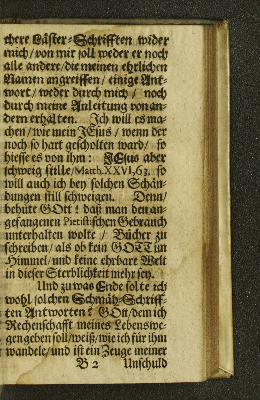 chere Läster-Schrifften wider
mich/von mir soll weder er noch
alle andere/die meinen ehrlichen
Namen angreiffen/einige Ant-
wort/weder durch mich/noch
durch meine Anleitung von an-
dern erhalten. Ich will es ma-
chen/wie mein JEsus/wenn der
noch so hart gescholten ward/so
hiesse es von ihm: JEsus aber
schweig stille/Matth. XXVI, 63. so
will auch ich bey solchen Schän-
dungen still schweigen. Denn/
behüte GOtt! daß man den an-
gefangenen Pietistischen Gebrauch
unterhalten wolte/Bücher zu
schreiben/als ob kein GOTT im
Himmel/und keine ehrbare Welt
in dieser Sterblichkeit mehr sey.
Und zu was Ende solte ich
wohl solchen Schmäh-Schriff-
ten Antworten? GOtt/dem ich
Rechenschafft meines Lebens we-
gen geben soll/weiß/wie ich für ihm
wandele/und ist ein Zeuge meiner
B 2 Unschuld